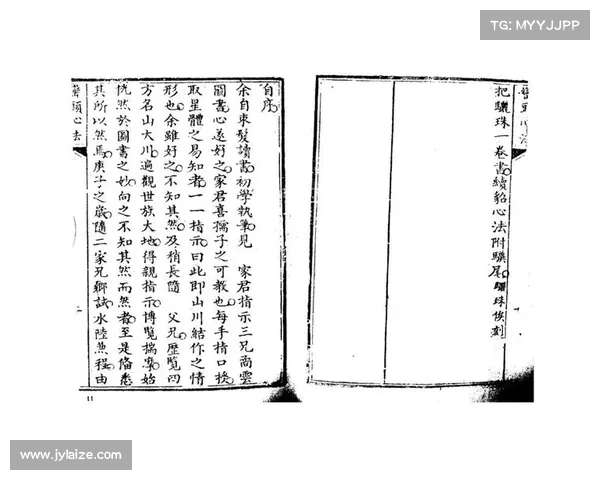 TG: MYYJJPP
把驪珠一卷書續貂心法附驥尾驪珠俟刻
自序
余自束髮讀書初學執筆見 家君指示三兄尚雲
圖書心遂好之家君喜孺子之可教也每手指口授
取星體之易知者一一指示曰此即山川結作之情
形也余雖好之不知其然及稍長隨 父兄歷覽四
方名山大川遍觀世族大地得親指示博覽揣摩始
恍然於圖書之妙向之不知其然而然者至是偹悉
其所以然焉庚子之歲隨二家兄鄉試水陸兼程由
巒頭心法
11
www.jylaize.com